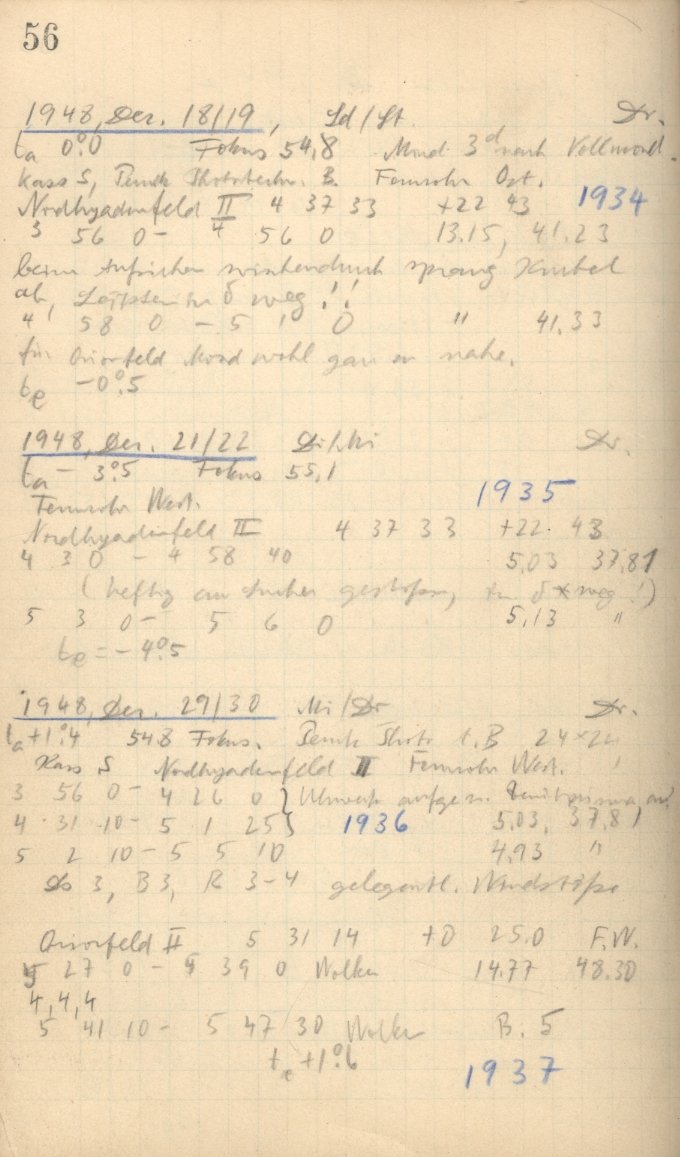 56
1948, Dez. 18/19, Ld/St. Dr.
ta 0°.0 Fokus 54,8 Mond 3d nach Vollmond.
Kass S, Fernrohr Ost. 1934
Nordhyadenfeld II 4 37 33 +22 43
3 56 0 - 4 56 0 13.15, 41.23
beim zwischendurch sprang Kurbel
ab, in δ weg!!
4 58 0 - 5 1 0 " 41.33
für Orionfeld Mond wohl gar zu nahe.
te -0°.5
1948, Dez. 21/22 Dr.
ta - 3°.5 Fokus 55,1
Fernrohr West. 1935
Nordhyadenfeld II 4 37 33 +22 43
4 3 0 - 4 58 40 5,03 37,81
(heftig an Sucher gestoßen, in δ * weg!)
5 3 0 - 5 6 0 5,13 "
te = - 4°.5
1948, Dez. 29/30 Mi/Dr Dr.
ta +1°.4 548 Fokus. 24×24
Kass S Nordhyadenfeld II Fernrohr West.
3 56 0 - 4 26 0 } Uhrwerk aufgez.
4 31 10 - 5 1 25 } 1936 5.03, 37.81
5 2 10 - 5 5 10 4.93 "
Ds 3, B 3, R 3-4 gelegentl. Windstöße
Orionfeld II 5 31 14 +0 25.0 F.W.
5 27 0 - 5 39 0 Wolken 14.77 48.30
4,4,4
5 41 10 - 5 47 30 Wolken B. 5
te +1°.6 1937